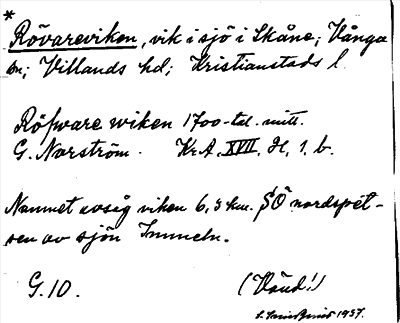 *
Rövareviken, vik i sjö i Skåne; Vånga
sn; Villands hd; Kristianstads l.
Röfware wiken 1700-tal. mitt.
G. Norström. Kr.A. XVII, H, 1. b.
Namnet avsåg viken 6,3 km. SÖ nordspet-
sen av sjön Immeln.
G. 10. (Vänd!)
1937.